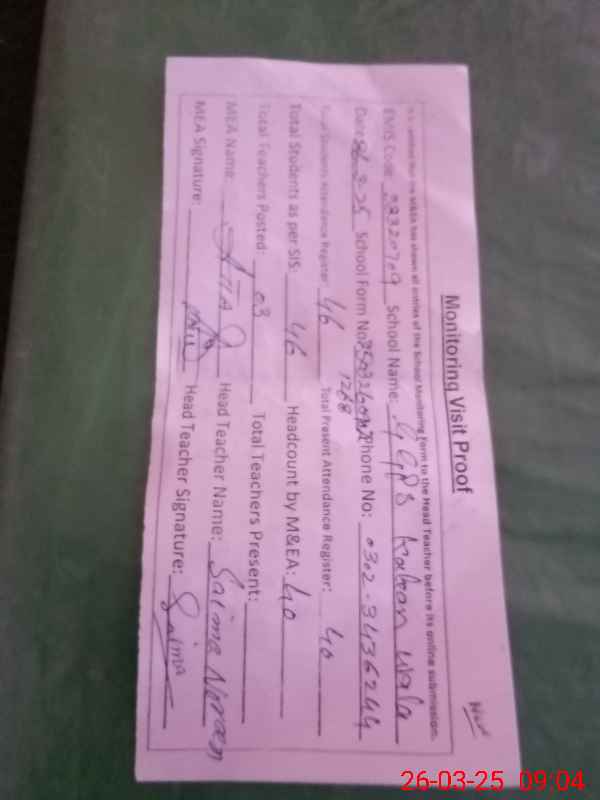 Monitoring Visit Proof
It is certified that the M&EA has shown all entries of the School Monitoring Form to the Head Teacher before its online submission.
EMIS Code: School Name: Wala
Date: School Form No: Phone No: 0302-3436244
1268
Total Students Attendance Register: 46 Total Present Attendance Register: 40
Total Students as per SIS: 46 Headcount by M&EA: 40
Total Teachers Posted: 03 Total Teachers Present:
MEA Name: Head Teacher Name: Saima Noreen
MEA Signature: Head Teacher Signature: Saima
26-03-25 09:04